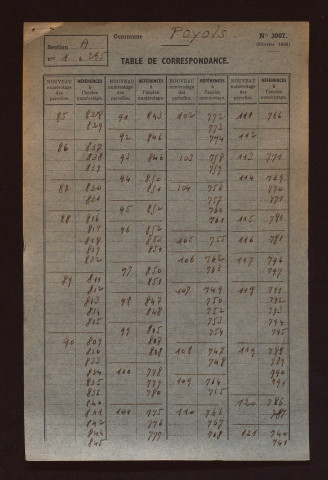 Commune Poyols
N° 3007.
Section A
N° 1 à 295
TABLE DE CORRESPONDANCE.
NOUVEAU numérotage des parcelles. RÉFÉRENCES à l'ancien numérotage. NOUVEAU numérotage des parcelles. RÉFÉRENCES à l'ancien numérotage. NOUVEAU numérotage des parcelles. RÉFÉRENCES à l'ancien numérotage. NOUVEAU numérotage des parcelles. RÉFÉRENCES à l'ancien numérotage.
85 828 91 843 102 772 111 766
829 773
92 846 794 112
86 837
838 93 846 103 758 113 771
839 759
94 850 114 769
87 820 851 104 756 770
821 757 771
95 852 760
88 816 761 115 781
817 96 852
818 850 105 755 116 781
819 851
822 106 762 117 796
97 850 763 797
89 811 851
812 107 749 119 791
813 98 847 750 792
814 848 751 793
815 752 794
99 805 753 795
90 807 807
820 808 108 747 119 788
833 748 789
834 100 778 790
835 779 109 764 791
836 780 765
840 120 786
841 100 775 110 766 787
842 776 767
844 777 768 121 740
845 741